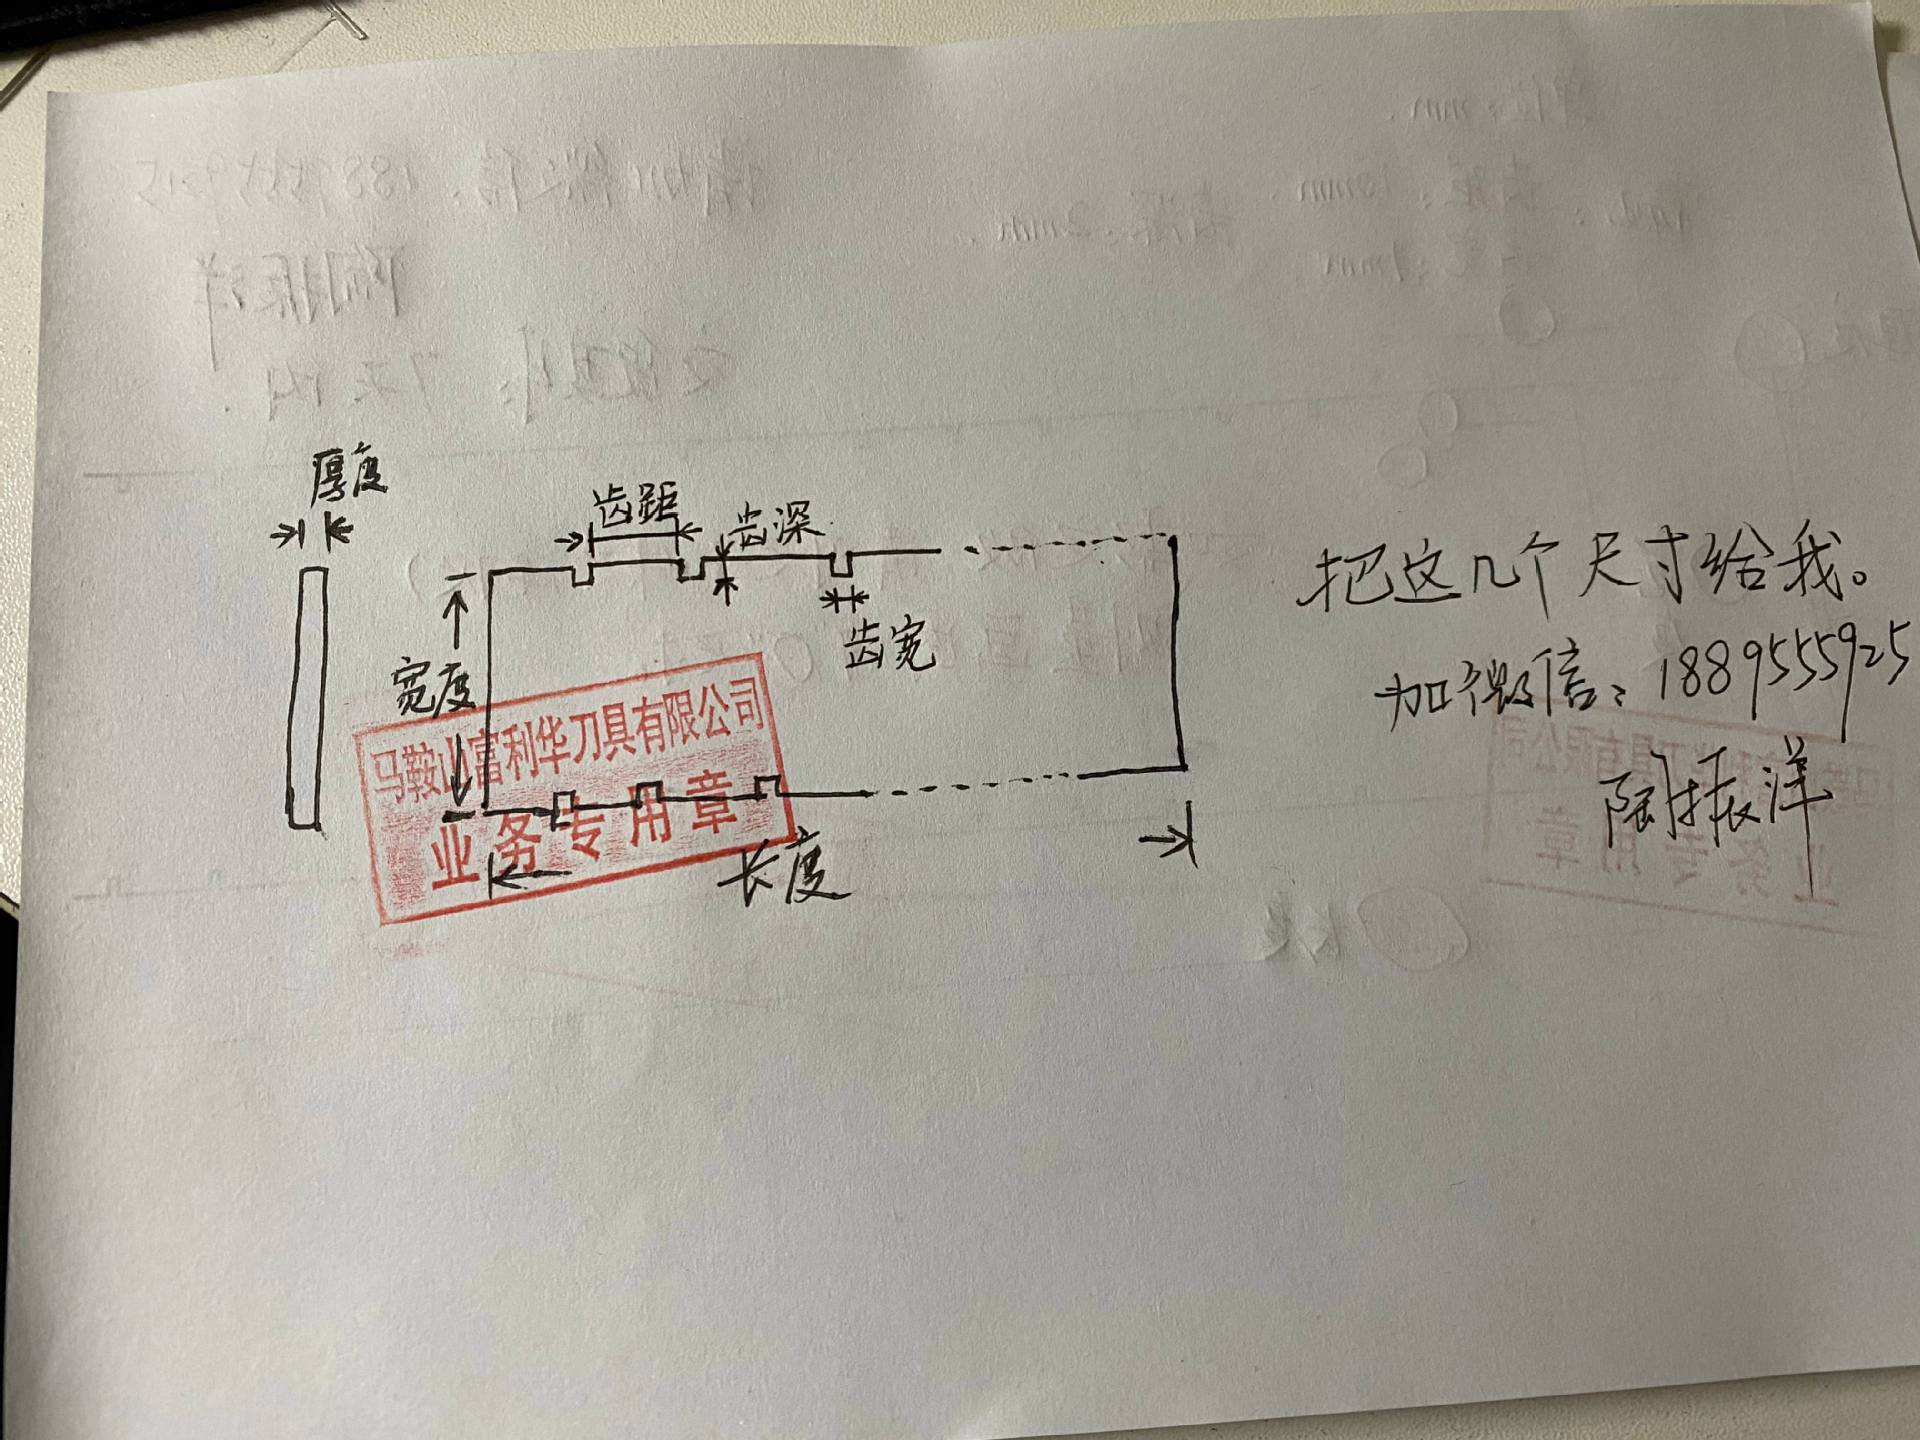 厚度
齿距
齿深
齿宽
宽度
长度
马鞍山富利华刀具有限公司
业务专用章
把这几个尺寸给我。
加微信:18895555925
陶振洋